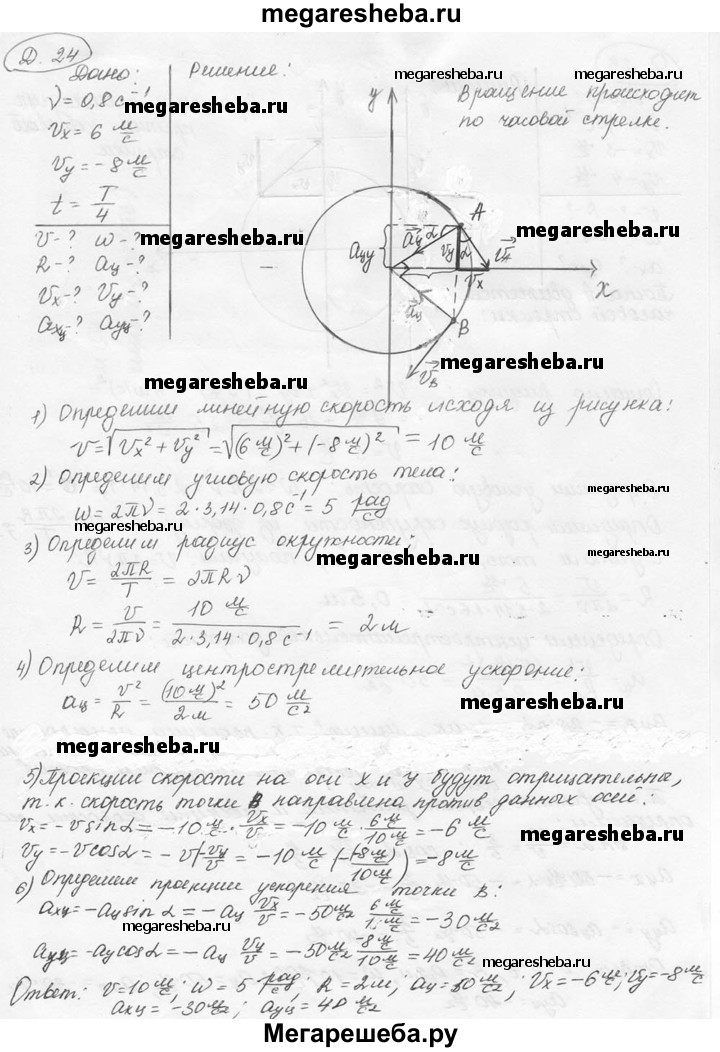 megaresheba.ru
Д. 24
Дано:
ν = 0,8 с⁻¹
Vx = 6 м/с
Vy = -8 м/с
t = T/4
V-? w-?
R-? aц-?
Vx-? Vy-?
aхц-? aуц-?
Решение:
megaresheba.ru megaresheba.ru
megaresheba.ru
Вращение происходит
по часовой стрелке.
y
A
aцу
aц
α
Vy
α
VA
Vx
x
aц
B
VB
megaresheba.ru megaresheba.ru
megaresheba.ru
1) Определим линейную скорость исходя из рисунка:
V = √(Vx² + Vy²) = √((6 м/с)² + (-8 м/с)²) = 10 м/с
2) Определим угловую скорость тела:
w = 2πν = 2·3,14·0,8 с⁻¹ = 5 рад/с
megaresheba.ru
megaresheba.ru
3) Определим радиус окружности:
megaresheba.ru
V = 2πR/T = 2πRν
R = V/2πν = 10 м/с / 2·3,14·0,8 с⁻¹ = 2 м
megaresheba.ru
4) Определим центростремительное ускорение:
aц = V²/R = (10 м/с)²/2 м = 50 м/с²
megaresheba.ru
megaresheba.ru
5) Проекции скорости на оси х и у будут отрицательна,
т.к. скорость точки В направлена против данных осей:
Vx = -V sinα = -10 м/с · Vx/V = -10 м/с · 6 м/с / 10 м/с = -6 м/с
megaresheba.ru
Vy = -V cosα = -V(-Vy/V) = -10 м/с (-(-8 м/с)/10 м/с) = -8 м/с
6) Определим проекции ускорения точки В:
aхц = -aц sinα = -aц Vx/V = -50 м/с² 6 м/с / 10 м/с = -30 м/с²
megaresheba.ru
aуц = -aц cosα = -aц Vy/V = -50 м/с² -8 м/с / 10 м/с = 40 м/с²
megaresheba.ru
Ответ: V = 10 м/с; w = 5 рад/с; R = 2 м; aц = 50 м/с²; Vx = -6 м/с; Vy = -8 м/с
aхц = -30 м/с²; aуц = 40 м/с²
megaresheba.ru
Мегарешеба.ру